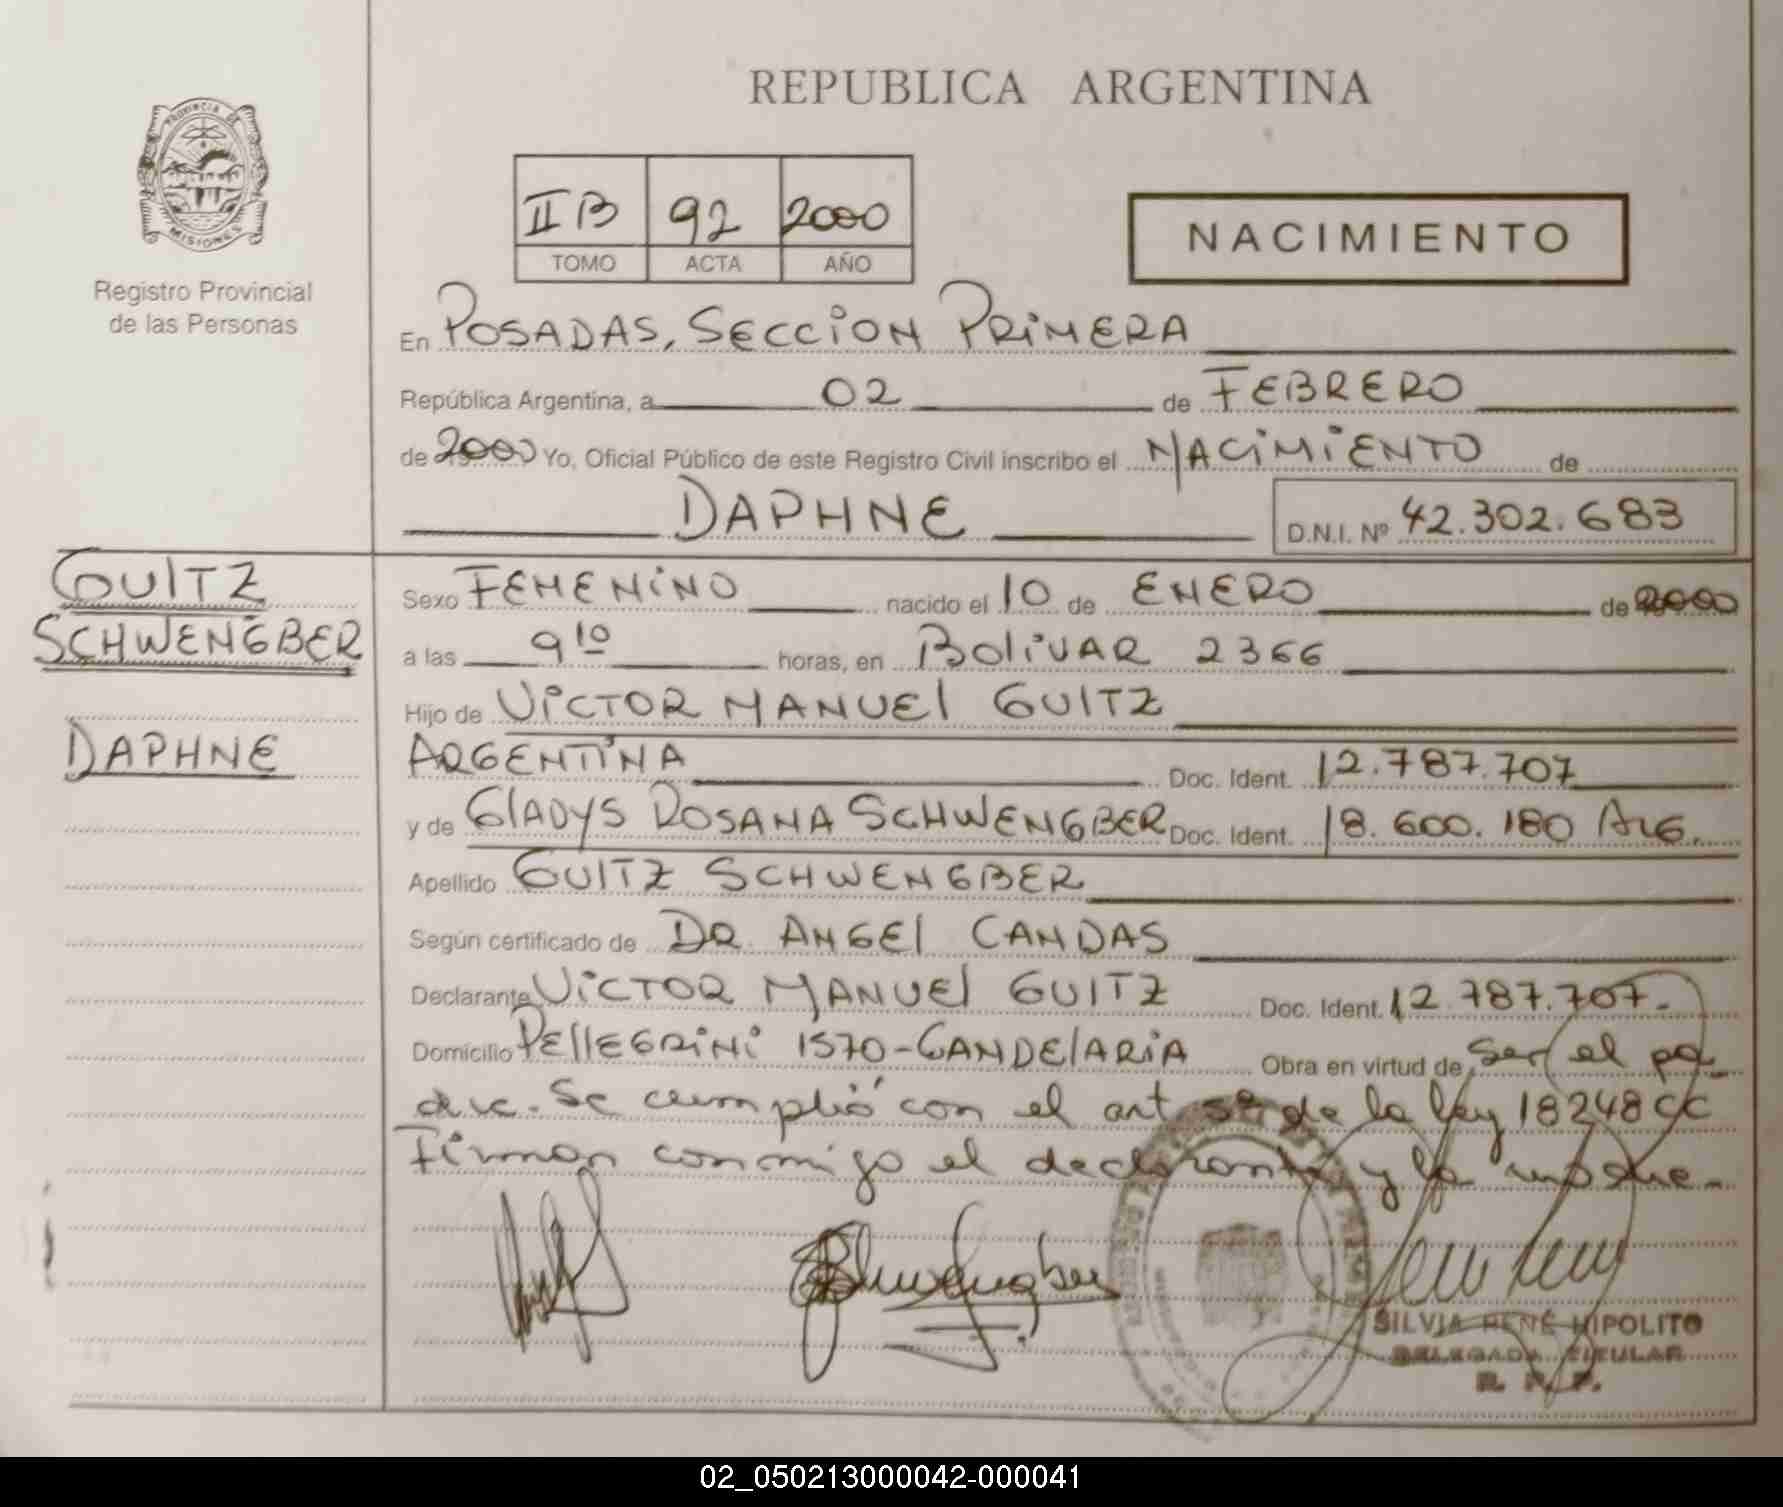 REPUBLICA ARGENTINA
PROVINCIA DE
MISIONES
Registro Provincial
de las Personas
II B 92 2000
TOMO ACTA AÑO
NACIMIENTO
En POSADAS, SECCION PRIMERA
República Argentina, a 02 de FEBRERO
de 2000 Yo, Oficial Público de este Registro Civil inscribo el NACIMIENTO de
DAPHNE D.N.I. Nº 42.302.683
GUITZ
SCHWENGBER
DAPHNE
Sexo FEMENINO nacido el 10 de ENERO de 2000
a las 9 10 horas, en BOLIVAR 2366
Hijo de VICTOR MANUEL GUITZ
ARGENTINA Doc. Ident. 12.787.707
y de GLADYS ROSANA SCHWENGBER Doc. Ident. 18.600.180 ARG.
Apellido GUITZ SCHWENGBER
Según certificado de DR. ANGEL CANDAS
Declarante VICTOR MANUEL GUITZ Doc. Ident. 12.787.707.-
Domicilio PELLEGRINI 1570-CANDELARIA Obra en virtud de ser el pa-
dre. Se cumplió con el art de la ley 18248 CC
Firman conmigo el declarante y la madre.-
Schwengber
SILVIA RENÉ HIPOLITO
DELEGADA TITULAR
R. P. P.
02_050213000042-000041